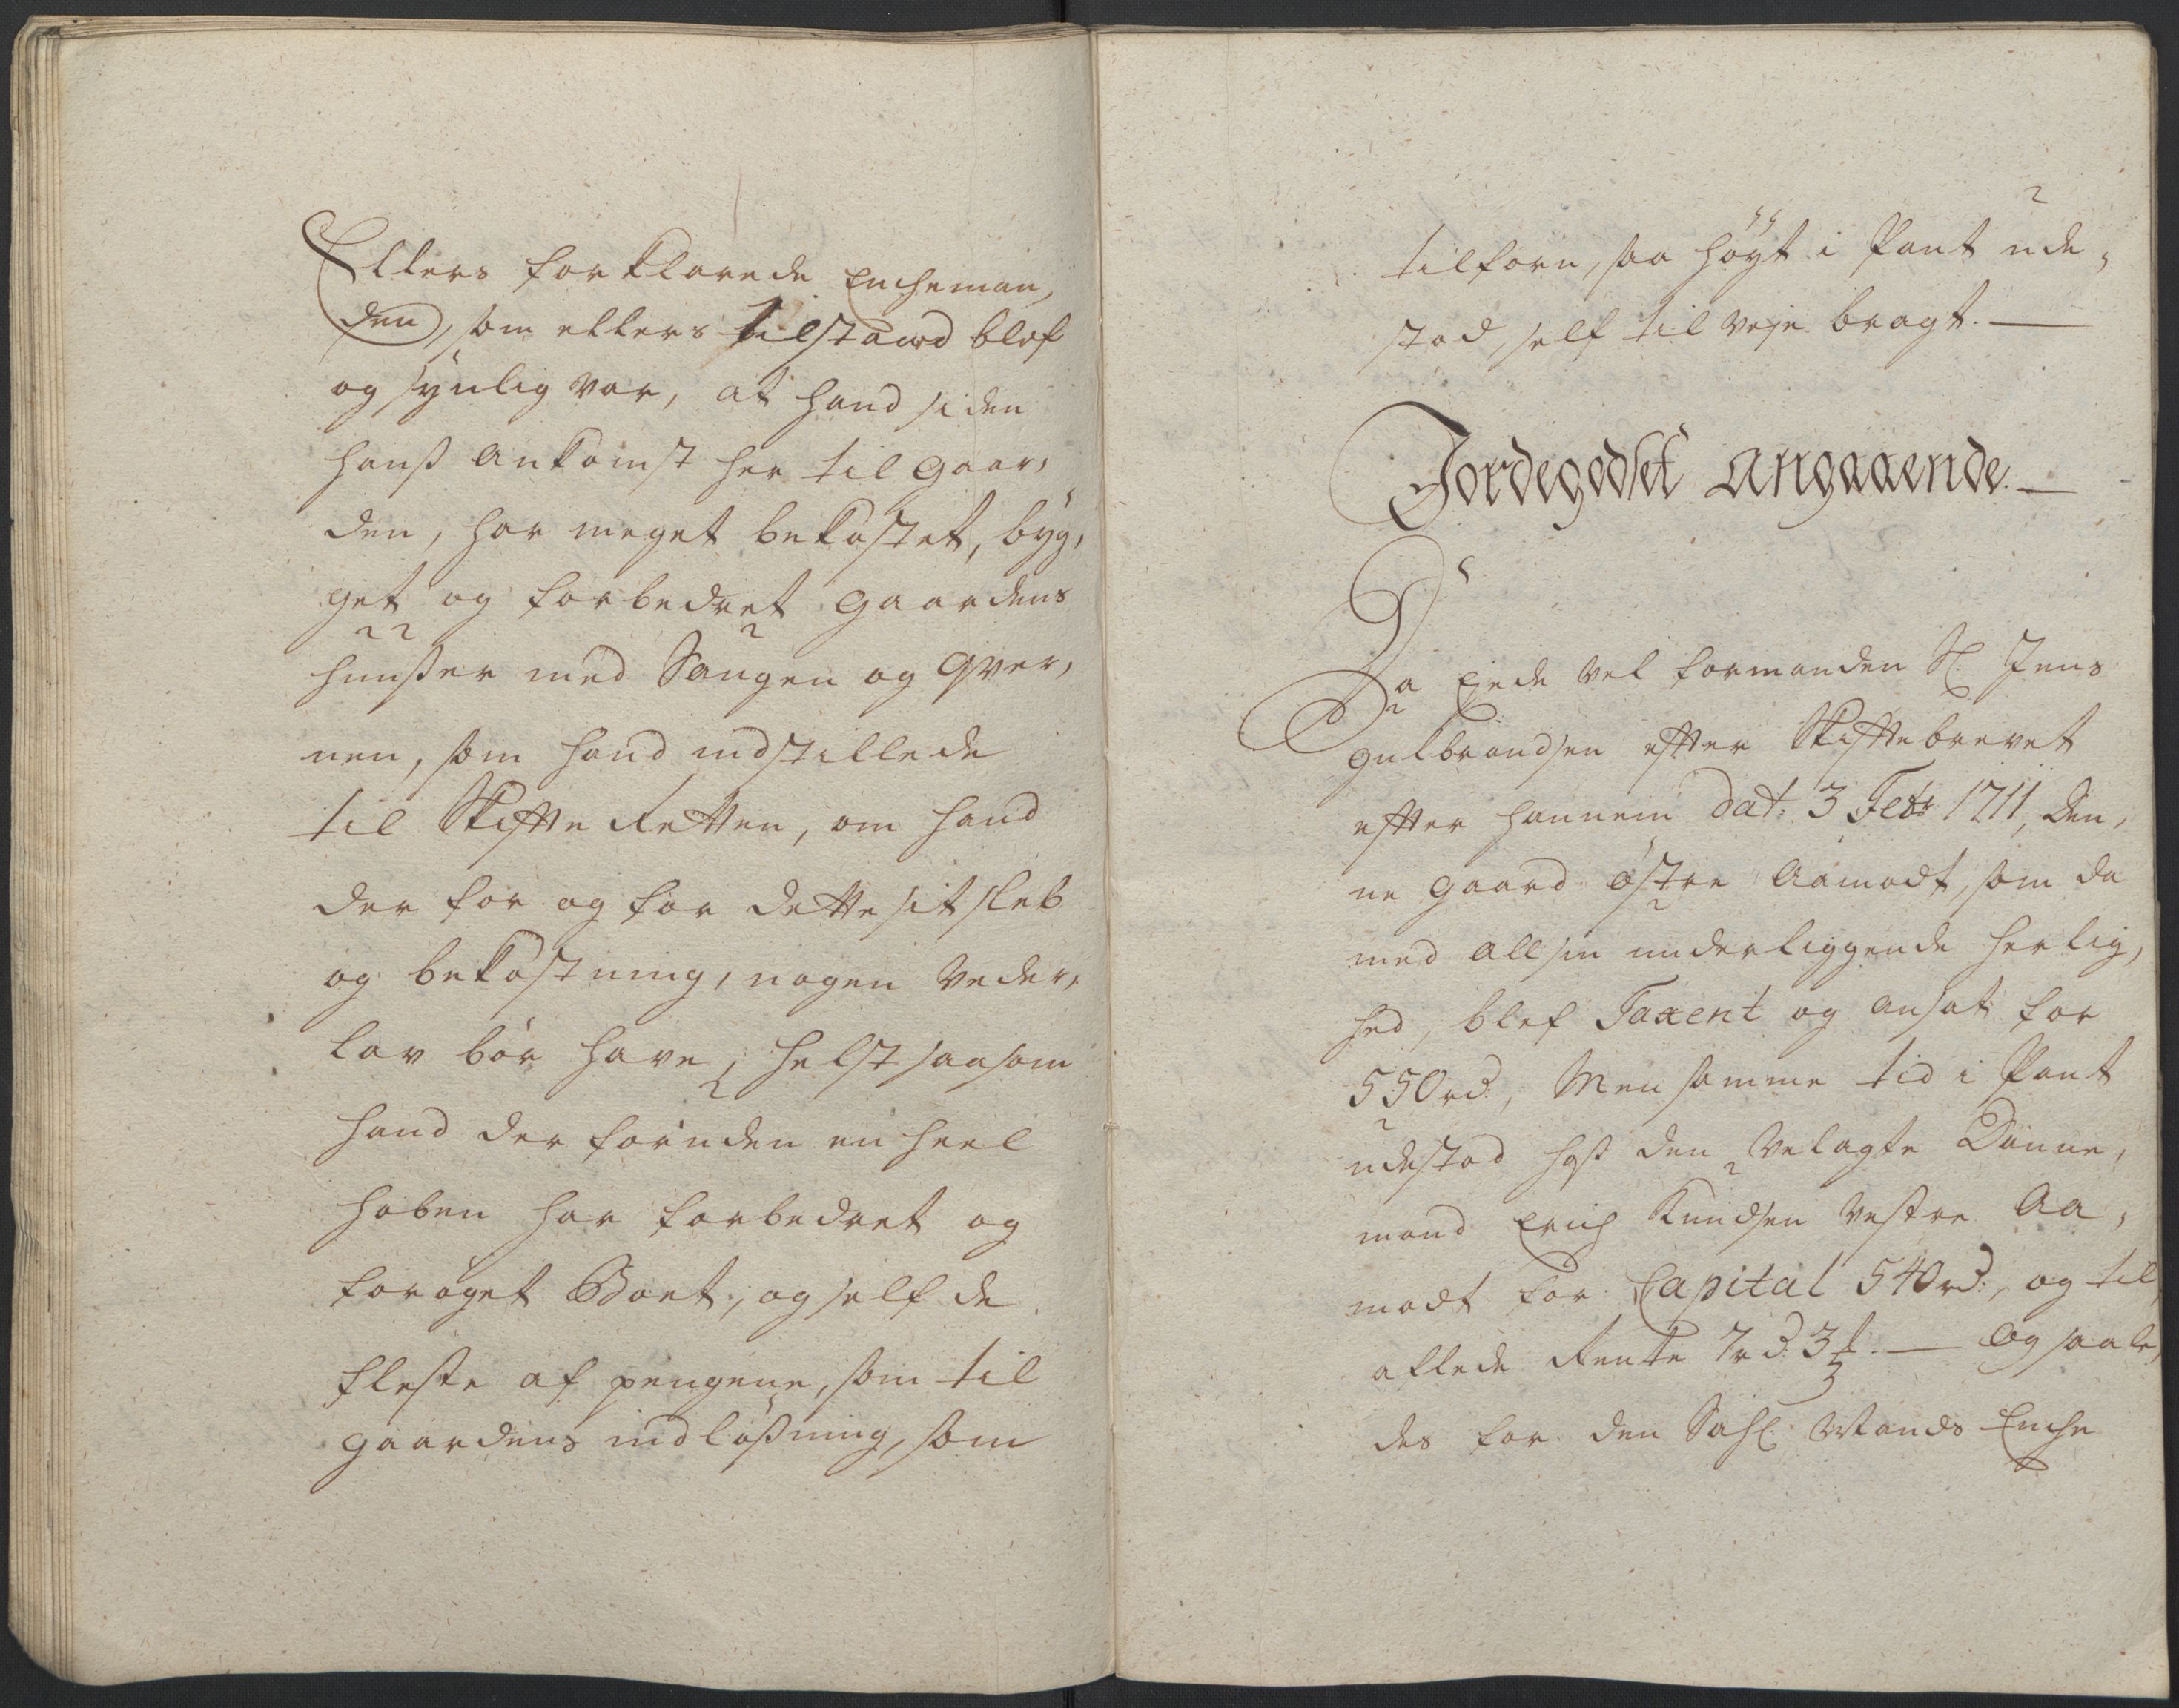 Ellers forklarede Encheman,
den, som ellers tilstaaed blef
og synlig var, at hand siden
hanß ankomst her til gaar,
den, har meget bekostet, byg,
get og forbedret gaardens
huußer med Saugen og Qver,
nen, som hand indstillede
til Skifte Retten, om hand
der for og for dette sit sleb
og bekostning, nogen Veder,
lav bör have, helst saasom
hand der foruden en heel
hoben har forbedret og
foröget Boet, og self de
fleste af pengene, som til
gaardens indlößning, som
tilforn, saa höyt i Pant ude,
stod, self til veje bragt. —
Jordegodset Angaaende. —
Da Ejede vel formanden Sl. Jens
gulbrandsen efter Skiftebrevet
efter hannem dat: 3 Febr 1711, Den,
ne gaard östre Aamodt, som da
med all sin underliggende herlig,
hed, blef Taxert og ansat for
550 rd:, Men samme tid i Pant
udestod hoß den Velagte Danne,
mand Erich Knudsen Vestre Aa,
modt for Capital 540 rd:, og til,
allede Rente 7 rd 3 ꝑ — Og saale,
des for den Sahl: Mands Enche